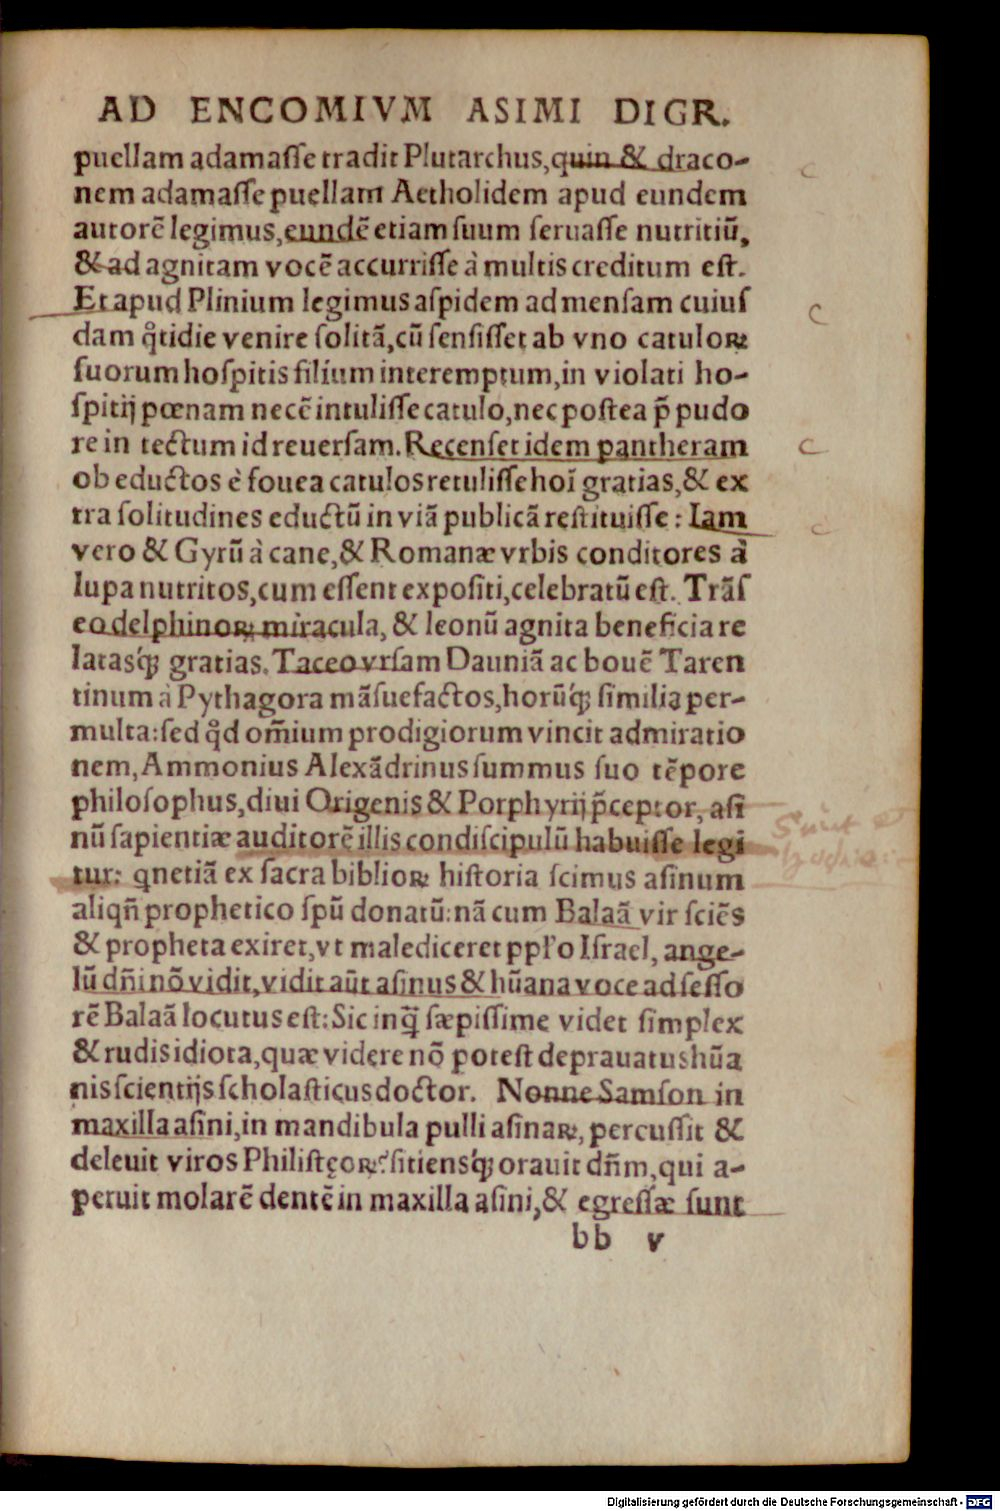 AD ENCOMIVM ASIMI DIGR.
puellam adamaſſe tradit Plutarchus, quin & draco-
nem adamaſſe puellam Aetholidem apud eundem
autorē legimus, eundē etiam ſuum ſeruaſſe nutritiū,
& ad agnitam vocē accurriſſe à multis creditum eſt.
Et apud Plinium legimus aſpidem ad menſam cuiuſ
dam q̊tidie venire ſolitã, cũ ſenſiſſet ab vno catuloꝝ
ſuorum hoſpitis filium interemptum, in violati ho-
ſpitij pœnam necē intuliſſe catulo, nec poſtea p̄ pudo
re in tectum id reuerſam. Recenſet idem pantheram
ob eductos è fouea catulos retuliſſe hoī gratias, & ex
tra ſolitudines eductũ in viã publicã reſtituiſſe: Iam
vero & Gyrũ à cane, & Romanæ vrbis conditores à
lupa nutritos, cum eſſent expoſiti, celebratũ eſt. Trãſ
eo delphinoꝝ miracula, & leonũ agnita beneficia re
latasq́ꝫ gratias. Taceo vrſam Dauniã ac bouē Taren
tinum à Pythagora mãſuefactos, horũq́ꝫ ſimilia per-
multa: ſed q̊d om̄ium prodigiorum vincit admiratio
nem, Ammonius Alexãdrinus ſummus ſuo tēpore
philoſophus, diui Origenis & Porphyrij p̄ceptor, aſi
nũ ſapientiæ auditorē illis condiſcipulũ habuiſſe legi
tur: qnetiã ex ſacra biblioꝝ hiſtoria ſcimus aſinum
aliqñ prophetico ſpũ donatũ: nã cum Balaã vir ſciēs
& propheta exiret, vt malediceret ppľo Iſrael, ange-
lũ dñi nõ vidit, vidit aũt aſinus & hũana voce ad ſeſſo
rē Balaã locutus eſt: Sic inq̃ ſæpiſſime videt ſimplex
& rudis idiota, quæ videre nõ poteſt deprauatus hũa
nis ſcientijs ſcholaſticus doctor. Nonne Samſon in
maxilla aſini, in mandibula pulli aſinaꝝ, percuſſit &
deleuit viros Philiſtęoꝝ? ſitiensq́ꝫ orauit dñm, qui a-
peruit molarē dentē in maxilla aſini, & egreſſæ ſunt
bb v
Digitalisierung gefördert durch die Deutsche Forschungsgemeinschaft - DFG